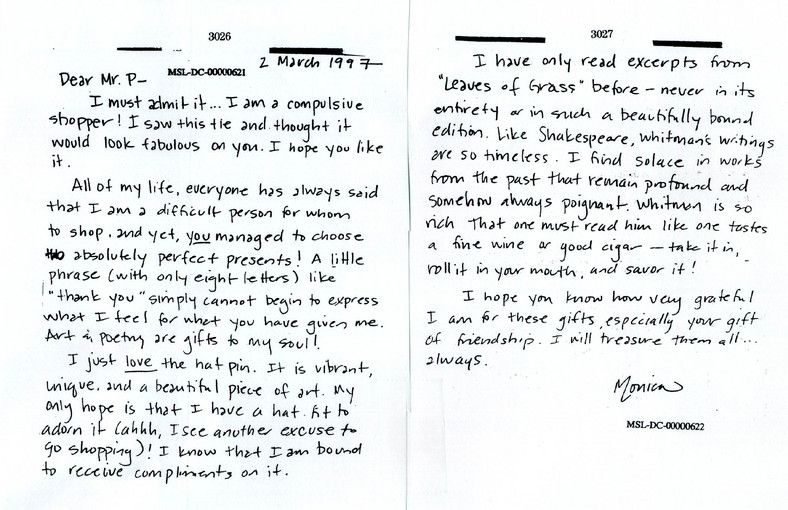 3026
2 March 1997
MSL-DC-00000621
Dear Mr. P-
I must admit it... I am a compulsive
shopper! I saw this tie and thought it
would look fabulous on you. I hope you like
it.
All of my life, everyone has always said
that I am a difficult person for whom
to shop, and yet, you managed to choose
absolutely perfect presents! A little
phrase (with only eight letters) like
"thank you" simply cannot begin to express
what I feel for what you have given me.
Art & poetry are gifts to my soul!
I just love the hat pin. It is vibrant,
unique, and a beautiful piece of art. My
only hope is that I have a hat fit to
adorn it (ahhh, I see another excuse to
go shopping)! I know that I am bound
to receive compliments on it.
3027
I have only read excerpts from
"Leaves of Grass" before - never in its
entirety or in such a beautifully bound
edition. Like Shakespeare, Whitman's writings
are so timeless. I find solace in works
from the past that remain profound and
somehow always poignant. Whitman is so
rich that one must read him like one tastes
a fine wine or good cigar - take it in,
roll it in your mouth, and savor it!
I hope you know how very grateful
I am for these gifts, especially your gift
of friendship. I will treasure them all...
always.
Monica
MSL-DC-00000622